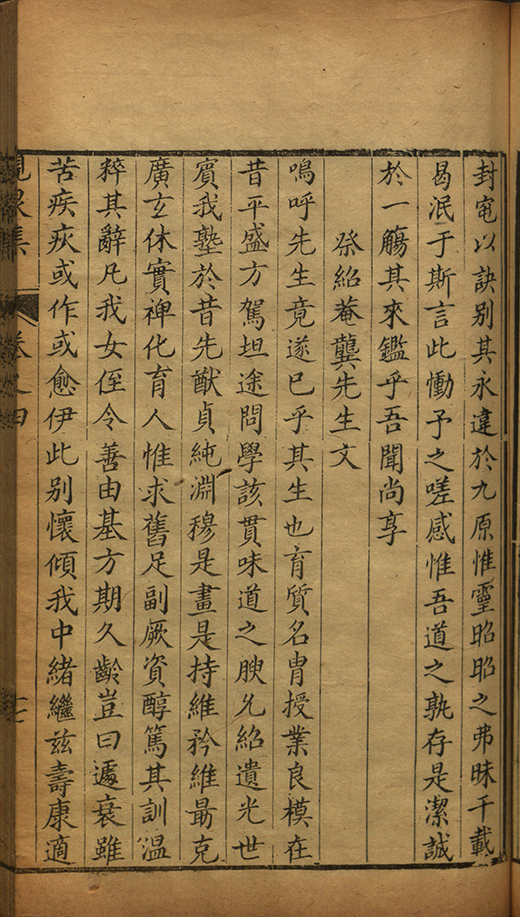 封窀以訣别其永違於九原惟靈昭昭之弗昧千載
曷泯于斯言此慟予之嗟感惟吾道之孰存是潔誠
於一觴其來鑑乎吾聞尚享
祭紹菴龔先生文
嗚呼先生竟遂已乎其生也育質名胄授業良模在
昔平盛方駕坦途問學該貫味道之腴允紹遺光世
賓我塾於昔先猷貞純淵穆是畫是持維矜維勗克
廣玄休實裨化育人惟求舊足副厥資醇篤其訓温
粹其辭凡我女侄令善由基方期久齡豈曰遽衰雖
苦疾疢或作或愈伊此别懷傾我中緒繼兹壽康適
集 卷之四